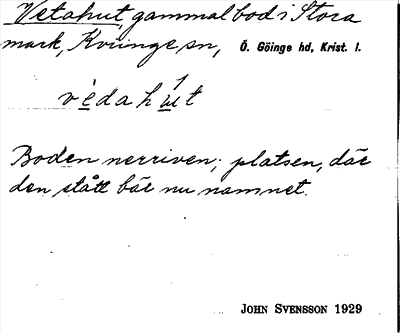 Vetahut, gammal bod i Stora
mark, Kviinge sn, Ö. Göinge hd, Krist. l.
vèdahút
Boden nerriven; platsen, där
den stått bär nu namnet.
JOHN SVENSSON 1929